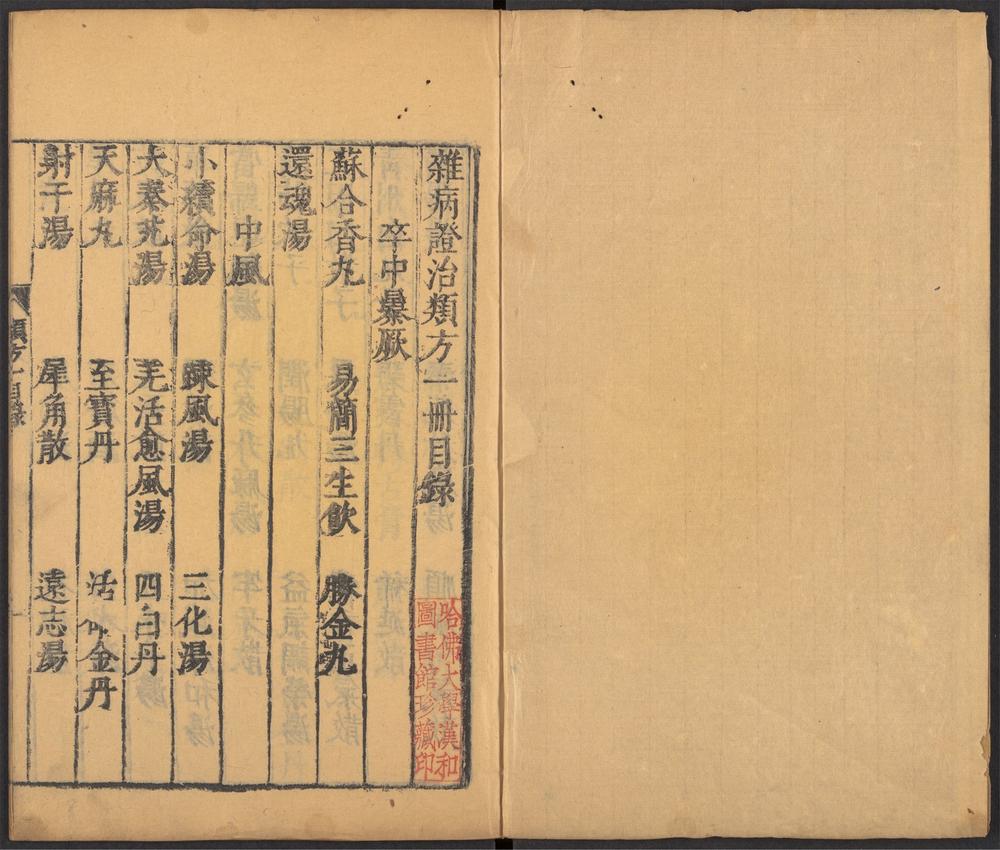 雜病證治類方一冊目錄
卒中暴厥
蘇合香丸 易簡三生飲 勝金丸
還魂湯
中風
小續命湯 疎風湯 三化湯
大秦艽湯 羌活愈風湯 四白丹
天麻丸 至寶丹 活命金丹
射干湯 犀角散 遠志湯
類方一目錄
哈佛大學漢和
圖書館珍藏印